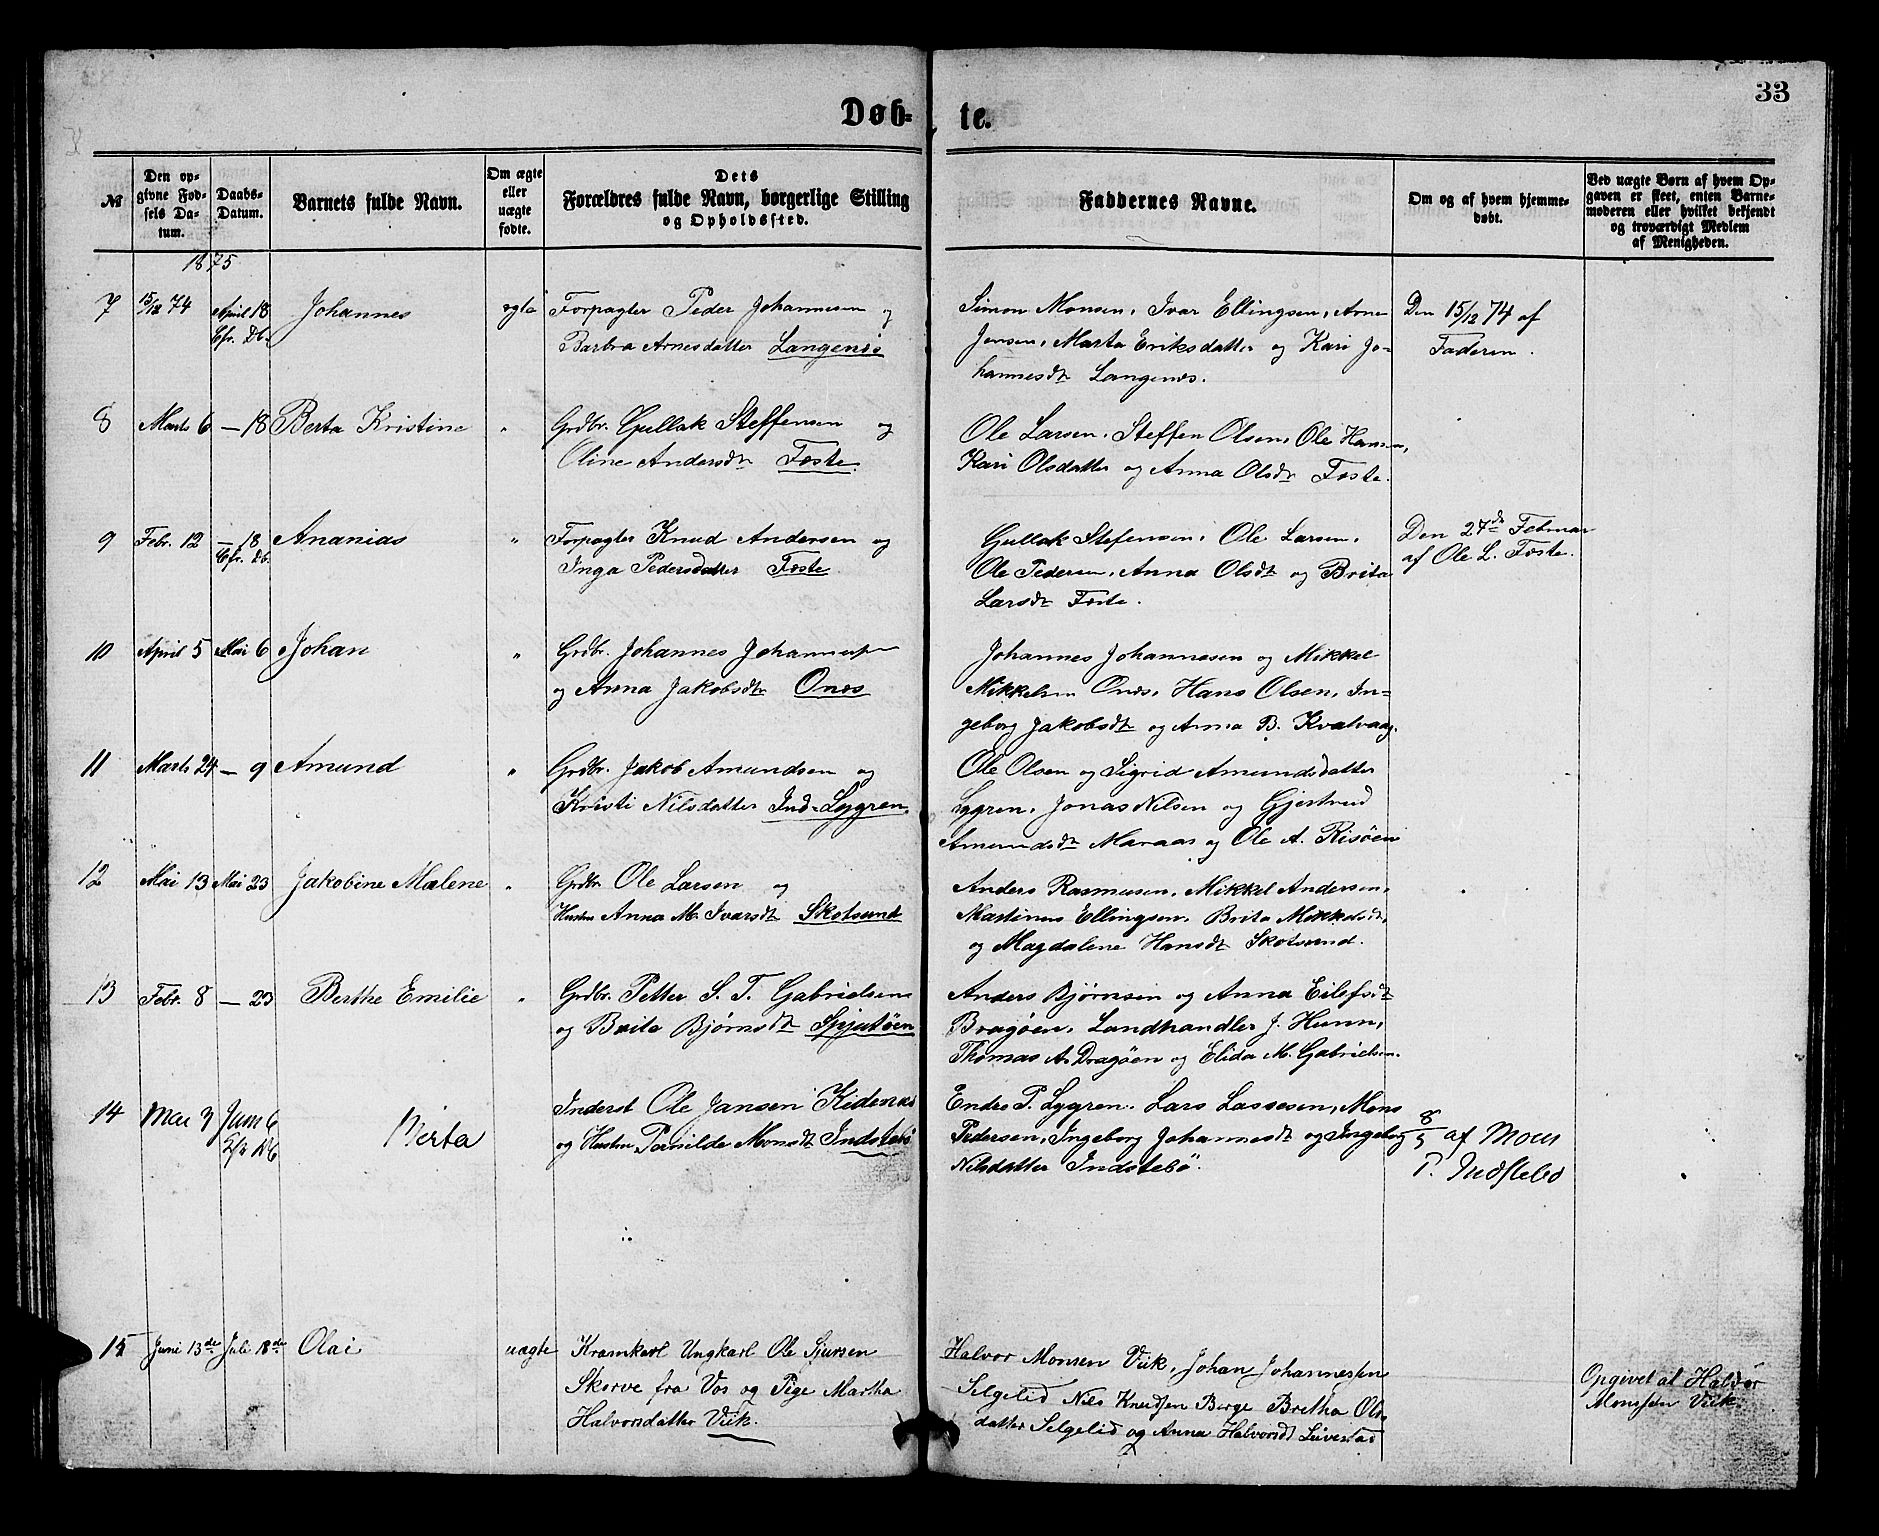 33
Døb- te.
№
Den op-
givne Fød-
sels Da-
tum.
Daabs-
Datum.
Barnets fulde Navn.
Om ægte
eller
uægte
fødte.
Dets
Forældres fulde Navn, borgerlige Stilling
og Opholdssted.
Faddernes Navne.
Om og af hvem hjemme-
døbt.
Ved uægte Børn af hvem Op-
gaven er skeet, enten Barne-
moderen eller hvilket bekjendt
og troværdigt Medlem
af Menigheden.
1875
7 15/12 74 April 18 Johannes egte Forpagter Peder Johannesen og
Cfr. Db. Barbra Arnesdatter Langenes
Simon Monsen, Ivar Ellingsen, Arne
Jensen, Marta Eriksdatter og Kari Jo-
hannesdtr Langenes.
Den 15/12 74 af
Faderen.
8 Marts 6 — 18 Berta Kristine " Grdbr. Gullak Steffensen og
Oline Andersdtr Foste.
Ole Larsen, Steffen Olsen, Ole Hansen,
Kari Olsdatter og Anna Olsdtr Foste.
9 Febr. 12 — 18 Ananias " Forpagter Knud Andersen og
Cfr. Db. Inga Pedersdatter Foste.
Gullak Stefensen, Ole Larsen,
Ole Pedersen, Anna Olsdt og Brita
Larsdt Foste.
Den 27de Februar
af Ole L. Foste.
10 April 5 Mai 6 Johan " Grdbr. Johannes Johannesen
og Anna Jakobsdtr Ones
Johannes Johannesen og Mikkel
Mikkelsen Ones, Hans Olsen, In-
geborg Jakobsdt og Anna B. Kvalvaag.
11 Marts 24 — 9 Amund " Grdbr. Jakob Amundsen og
Kristi Nilsdatter Ind-Lygren
Ole Olsen og Sigrid Amundsdatter
Lygren, Jonas Nilsen og Gjertrud
Amundsdt Maraas og Ole A. Risöen
12 Mai 13 Mai 23 Jakobine Malene " Grdbr Ole Larsen og
Hustru Anna M. Ivarsdt Skotsund
Anders Rasmusen, Mikkel Andersen,
Martinus Ellingsen, Brita Mikkelsdt,
og Magdalene Hansdt Skotsund.
13 Febr. 8 — 23 Berthe Emilie " Grdbr. Petter S. T. Gabrielsen
og Brita Bjørnsdt Spjutöen
Anders Bjørnsen og Anna Eilefsdt
Dragöen, Landhandler J. Hunn,
Thomas A. Dragöen og Elida M. Gabrielsen.
14 Mai 3 Juni 6 Berta Inderst Ole Jansen Kidenes
og Hustru Pernilde Monsdt Indstebö
Endre P. Lygren, Lars Lassesen, Mons
Pedersen, Ingeborg Johannesdt og Ingeborg
Nilsdatter Indstebö.
8/5 af Mons
P. Indstebö
15 Juni 13de Juli 18de Olai uægte Kramkarl Ungkarl Ole Sjursen
Skorve fra Vos og Pige Martha
Halvorsdatter Viik.
Halvor Monsen Viik, Johan Johannessen
Selgelid Nils Knudsen Berge Britha Ols-
datter Selgelid og Anna Halvorsdt Leirestad
Opgivet af Halvor
Monssen Viik.